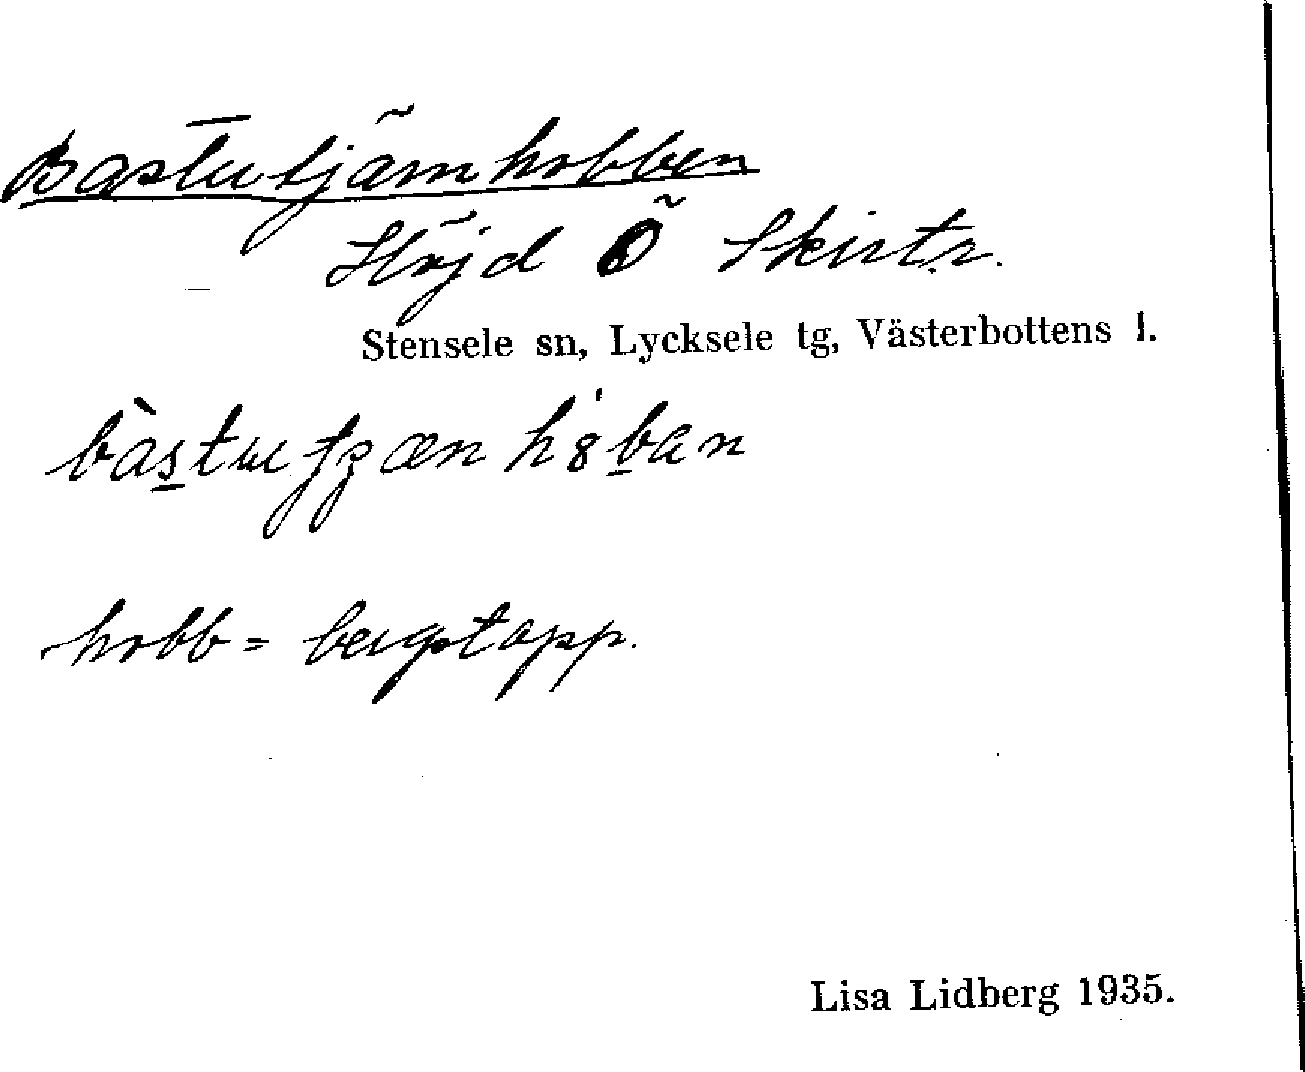 Bastutjärnhobben
Höjd Ö Skirtr.
Stensele sn, Lycksele tg, Västerbottens l.
hobb = bergstapp.
Lisa Lidberg 1935.